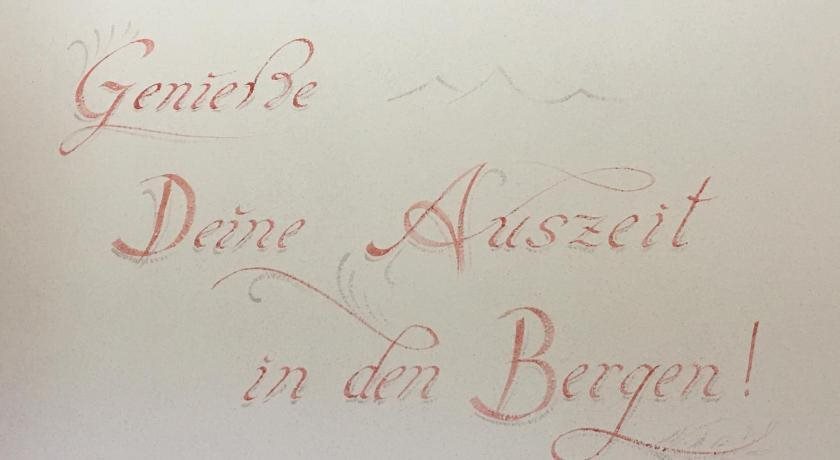 Genieße
Deine Auszeit
in den Bergen!